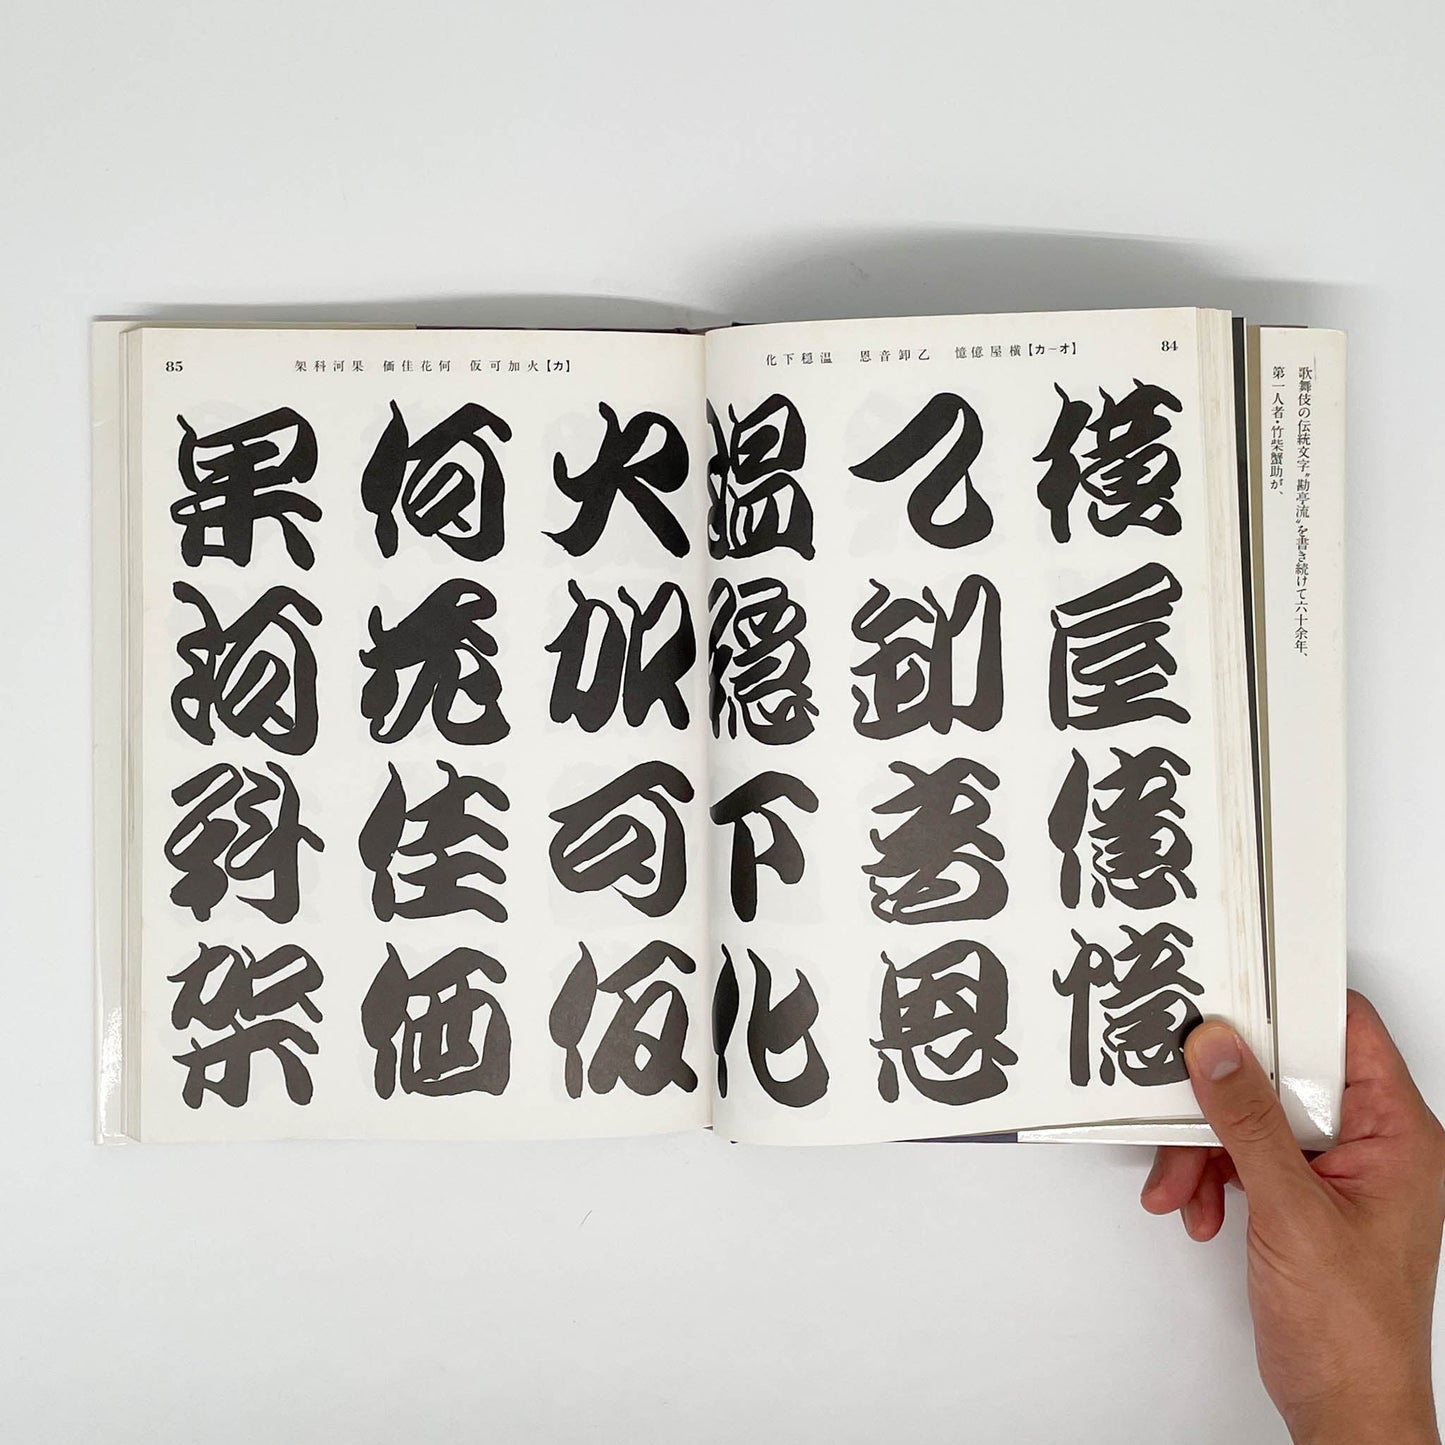 歌舞伎の伝統文字〝勘亭流〟を書き続けて六十余年、
第一人者・竹柴蟹助が、
84
【カ―オ】横屋億憶　乙卸音恩　温穏下化
横屋億憶
乙卸音恩
温穏下化
85
【カ】火加可仮　何花佳価　果河科架
火加可仮
何花佳価
果河科架